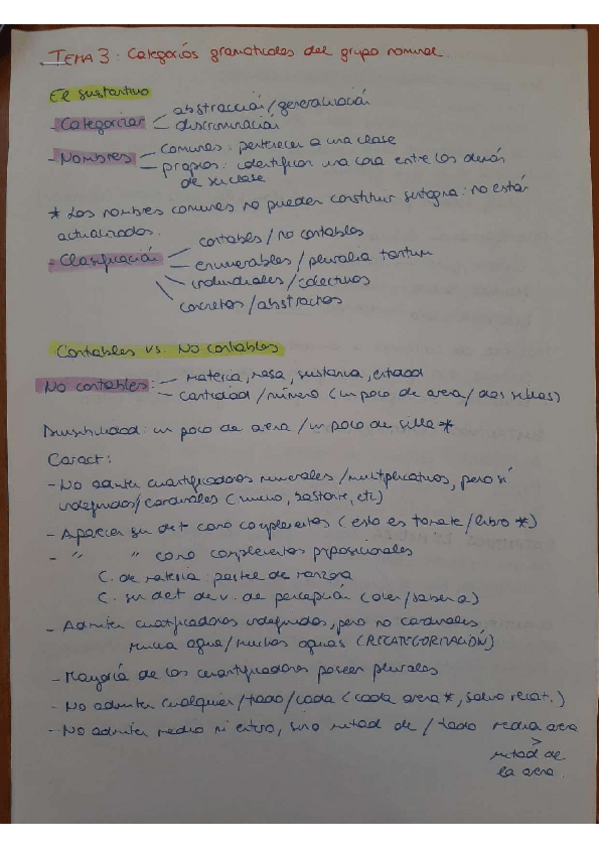 TEMA 3: Categorías gramaticales del grupo nominal.
El sustantivo
- Categorizar
abstracción/generalización
discriminación
- Nombres
comunes: pertenecer a una clase
propios: identificar una cosa entre los demás
de su clase
* Los nombres comunes no pueden constituir sintagma: no están
actualizados.
- Clasificación
contables/no contables
enumerables/pluralia tantum
individuales/colectivos
concretos/abstractos
Contables vs. No contables
No contables:
- Materia, masa, sustancia, entidad
- Cantidad/número (un poco de arena/dos sillas)
Divisibilidad: un poco de arena/un poco de silla*
Caract:
- No admiten cuantificadores numerales/multiplicativos, pero sí
indefinidos/cardinales (mucho, bastante, etc)
- Aparecen sin det como complementos (esto es tomate/libro*)
- " " como complementos preposicionales
C. de materia: pastel de manzana
C. sin det de v. de percepción (oler/saber a)
- Admiten cuantificadores indefinidos, pero no cardinales
mucha agua/muchas aguas (RECATEGORIZACIÓN)
- Mayoría de los cuantificadores poseen plurales
- No admiten cualquier/todo/cada (cada arena*, salvo recat.)
- No admiten medio ni entero, sino mitad de/todo media arena
>
mitad de
la arena.